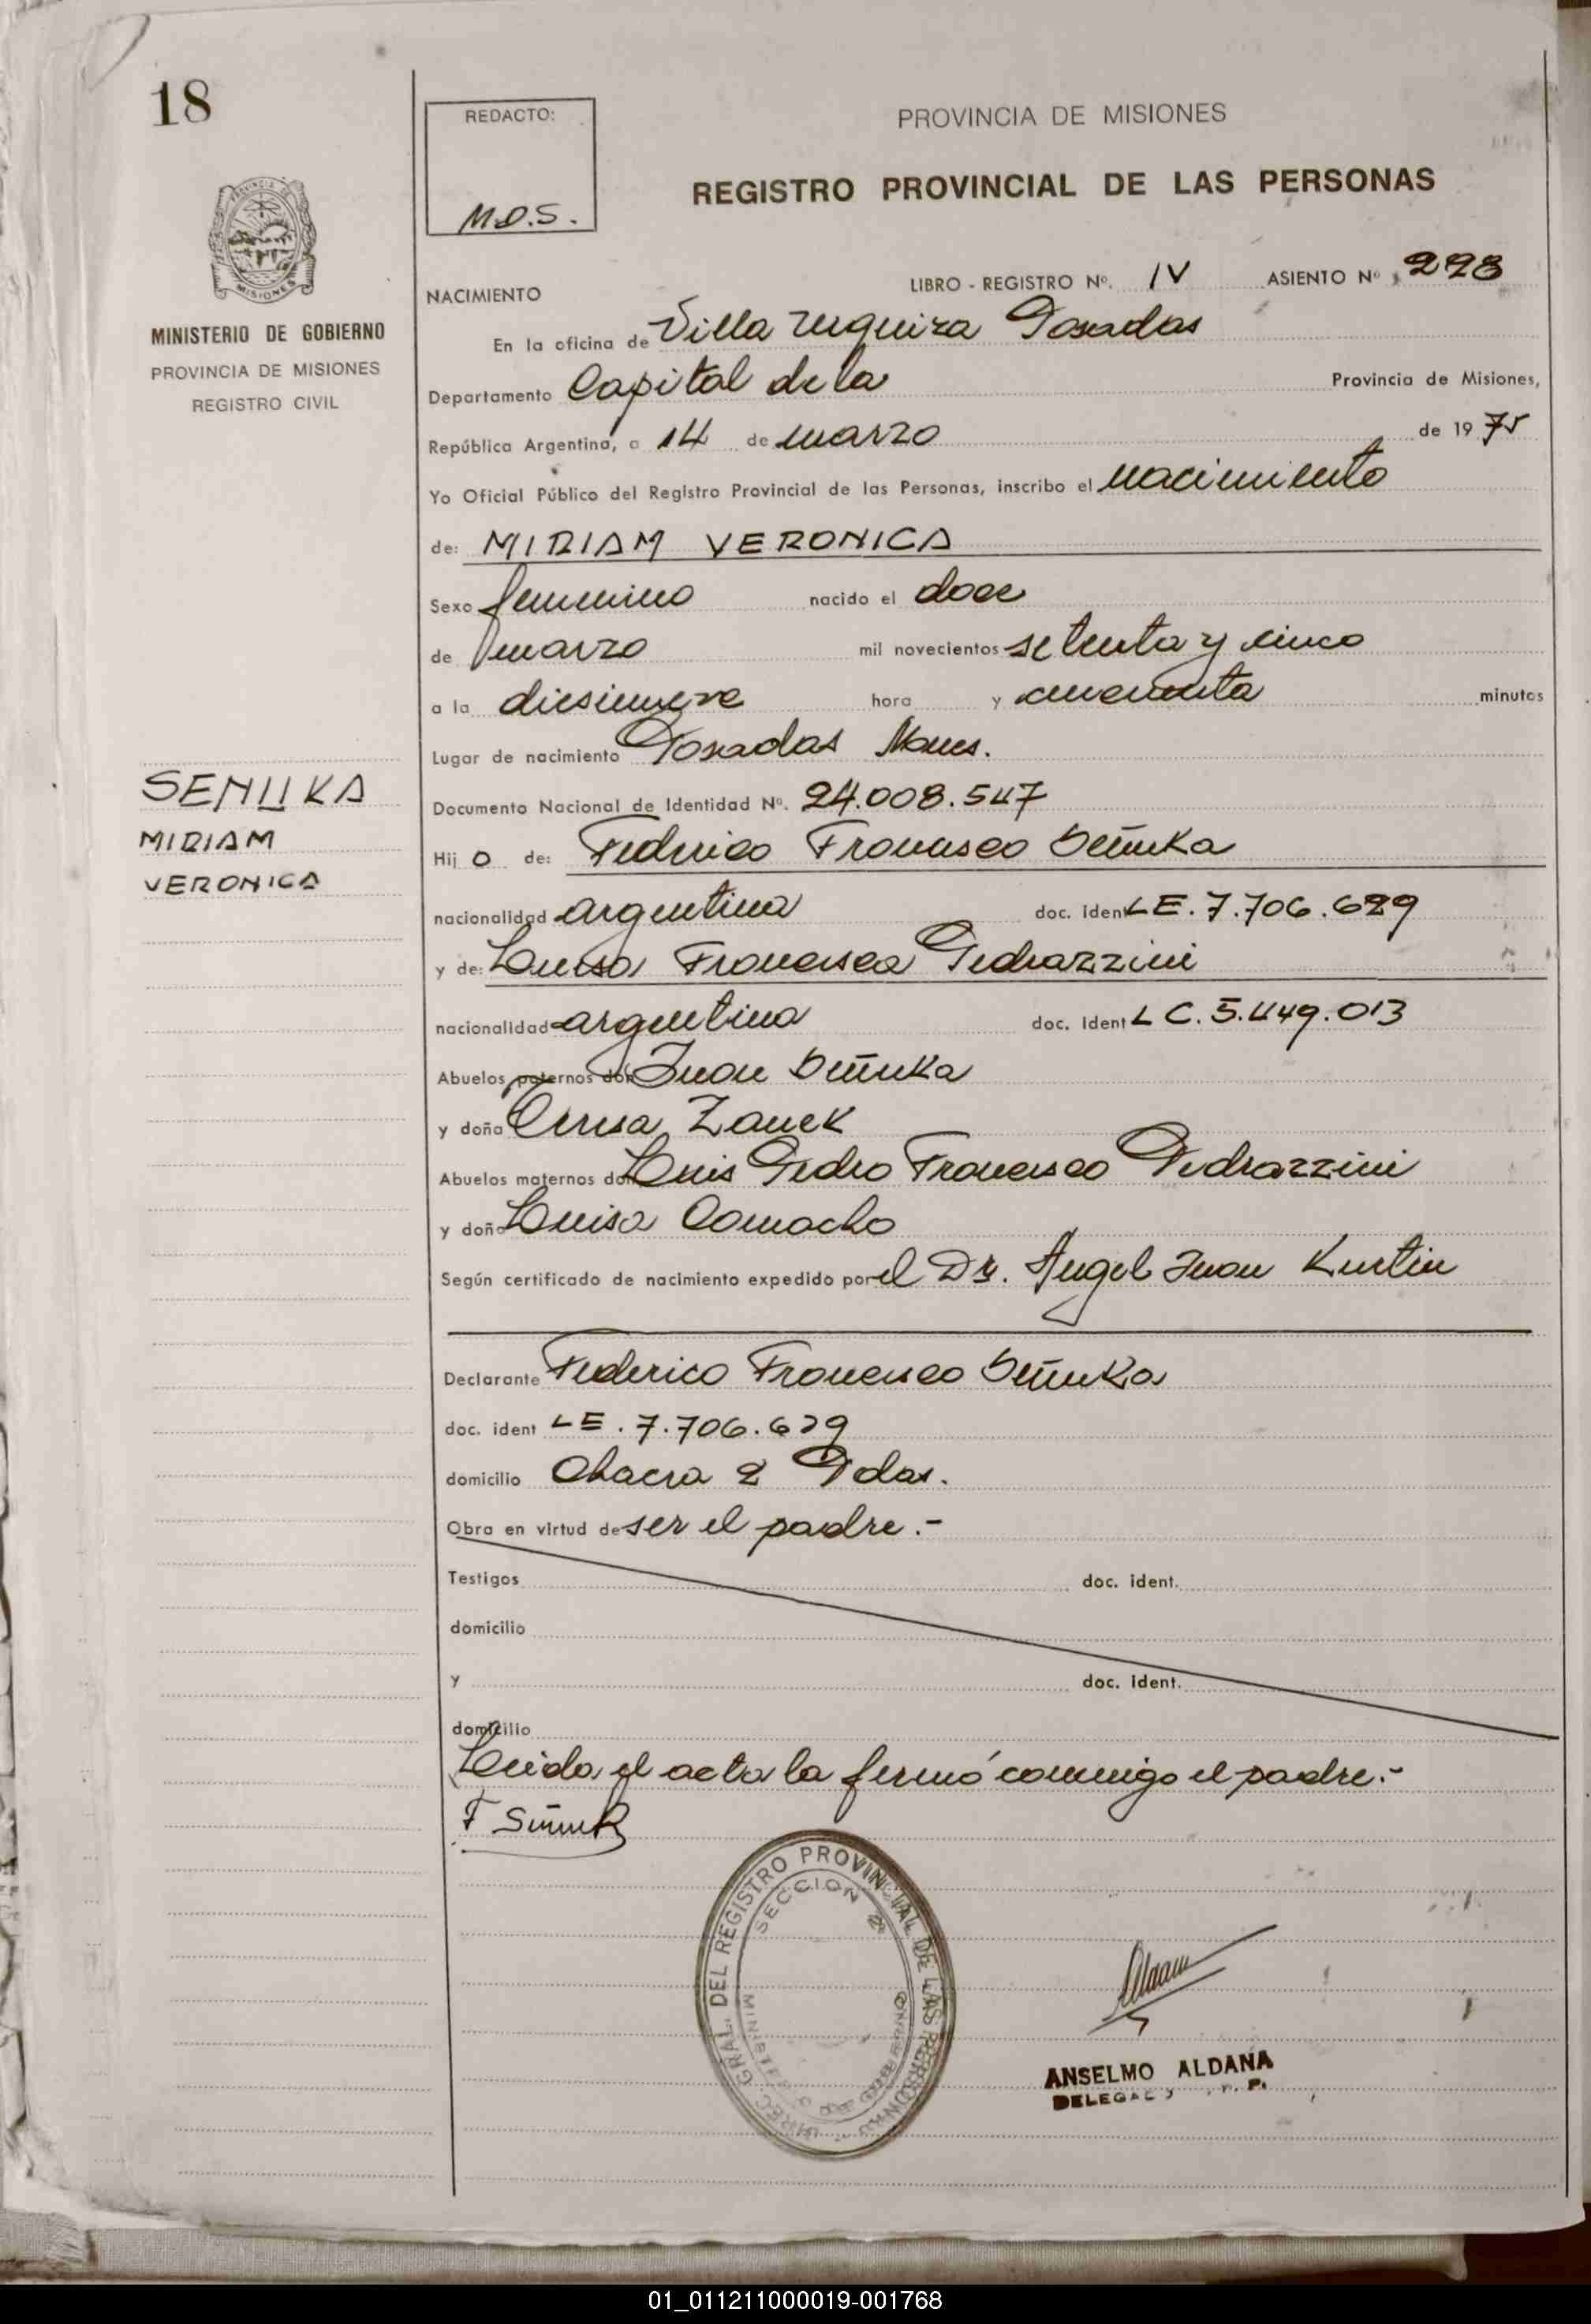 18
REDACTO:
M.O.S.
PROVINCIA DE MISIONES
REGISTRO PROVINCIAL DE LAS PERSONAS
PROVINCIA DE
MISIONES
MINISTERIO DE GOBIERNO
PROVINCIA DE MISIONES
REGISTRO CIVIL
NACIMIENTO LIBRO - REGISTRO Nº. IV ASIENTO Nº 298
En la oficina de Villa Urquiza Posadas
Departamento Capital de la Provincia de Misiones,
República Argentina, a 14 de marzo de 1975
Yo Oficial Público del Registro Provincial de las Personas, inscribo el nacimiento
de: MIRIAM VERONICA
Sexo femenino nacido el doce
de marzo mil novecientos setenta y cinco
a la diesinueve hora y cincuenta minutos
Lugar de nacimiento Posadas Mnes.
SEÑUKA
MIRIAM
VERONICA
Documento Nacional de Identidad Nº. 24.008.547
Hij o de: Federico Francisco Señuka
nacionalidad argentina doc. ident LE. 7.706.629
y de: Luisa Francisca Pedrazzini
nacionalidad argentina doc. ident LC. 5.449.013
Abuelos paternos don Juan Señuka
y doña Teresa Zanek
Abuelos maternos don Luis Pedro Francisco Pedrazzini
y doña Luisa Camacho
Según certificado de nacimiento expedido por el Dr. Angel Juan Kurtin
Declarante Federico Francisco Señuka
doc. ident LE. 7.706.629
domicilio Chacra 2 Pdas.
Obra en virtud de ser el padre.-
Testigos doc. ident.
domicilio
y doc. ident.
domicilio
Leida el acta la firmó conmigo el padre.-
DIREC. GRAL. DEL REGISTRO PROVINCIAL DE LAS PERSONAS
SECCION 2ª
MINISTERIO DE GOBIERNO
ANSELMO ALDANA
01_011211000019-001768